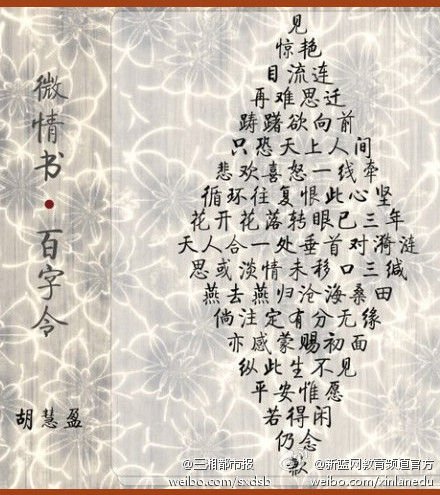 微情书·百字令
胡慧盈
见
惊艳
目流连
再难思迁
踌躇欲向前
只恐天上人间
悲欢喜怒一线牵
循环往复恨此心坚
花开花落转眼已三年
天人合一处垂首对漪涟
思或淡情未移口三缄
燕去燕归沧海桑田
倘注定有分无缘
亦感蒙赐初面
纵此生不见
平安惟愿
若得闲
仍念
歉
@三湘都市报
weibo.com/sxdsb
@新蓝网教育频道官方
weibo.com/xinlanedu